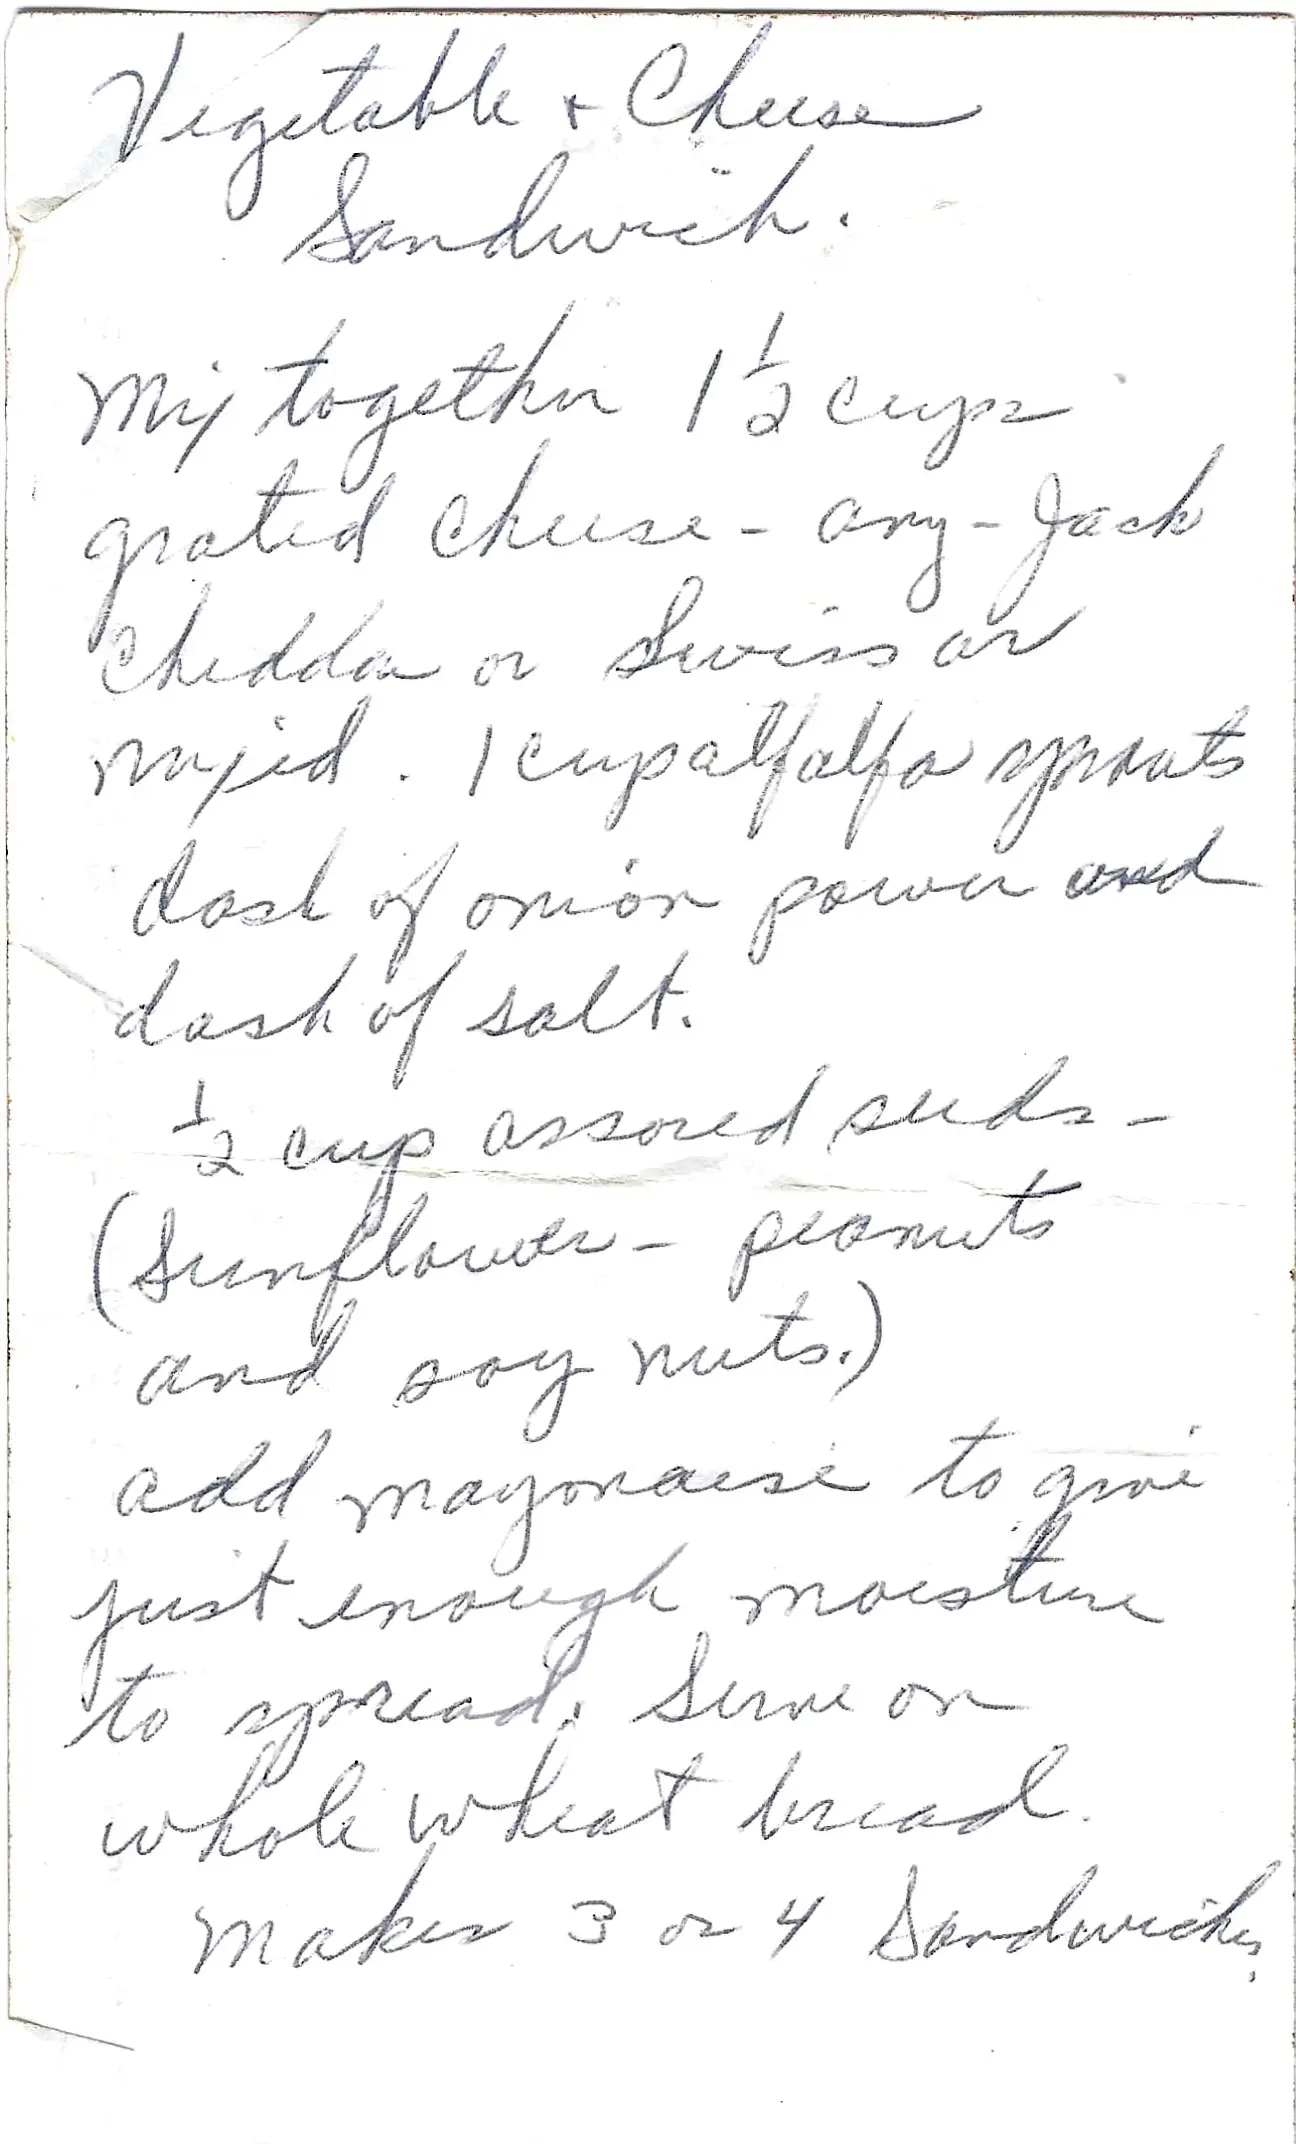 Vegetable + Cheese
Sandwich.
Mix together 1 1/2 cups
grated cheese - any - Jack
Chedda or Swiss or
mixed. 1 cup alfalfa sprouts
dash of onion power and
dash of salt.
1/2 cup assored seeds -
(Sunflower - peanuts
and soy nuts.)
add mayonaise to give
just enough moisture
to spread. Serve on
whole wheat bread.
Makes 3 or 4 Sandwiches.